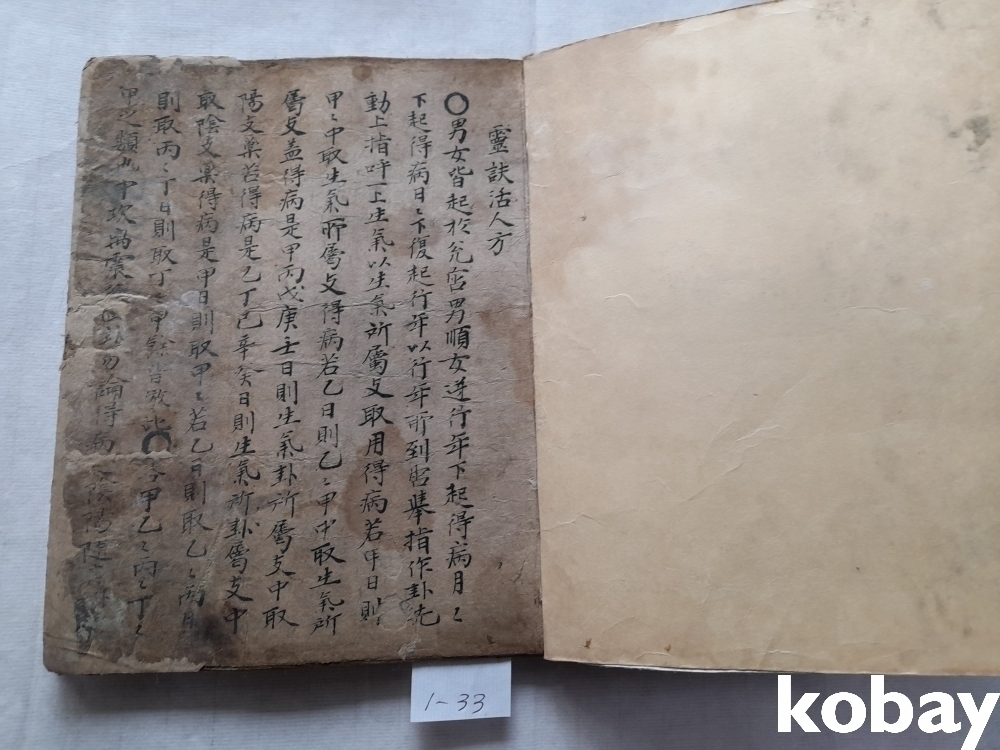 靈訣活人方
〇男女皆起於兊宮男順女逆行年下起得病月〻
下起得病日〻下復起行年以行年所到照擧指作卦先
動上指呼一上生氣以生氣所屬攴取用得病若甲日則
甲〻中取生氣所屬攴得病若乙日則乙〻甲中取生氣所
屬攴盖得病是甲丙戊庚壬日則生氣卦所屬支中取
陽支藥若得病是乙丁己辛癸日則生氣所卦屬支中
取陰支藥得病是甲日則取甲〻若乙日則取乙〻丙日
則取丙〻丁日則取丁〻甲 皆 此〇 甲乙〻丙〻丁〻
甲之類 中坎 震 勿論得病 陰陽
1-33
kobay